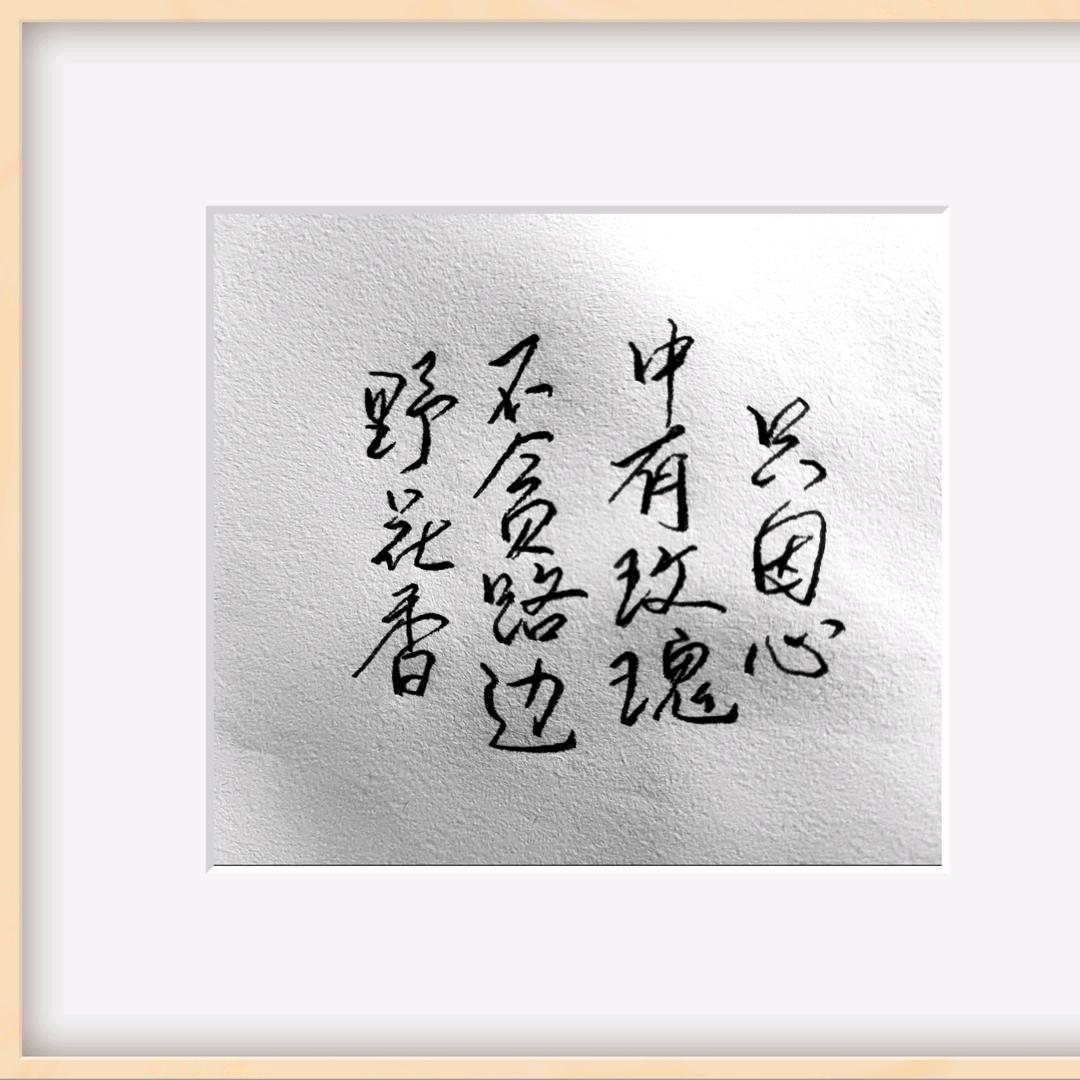 只因心
中有玫瑰
不贪路边
野花香